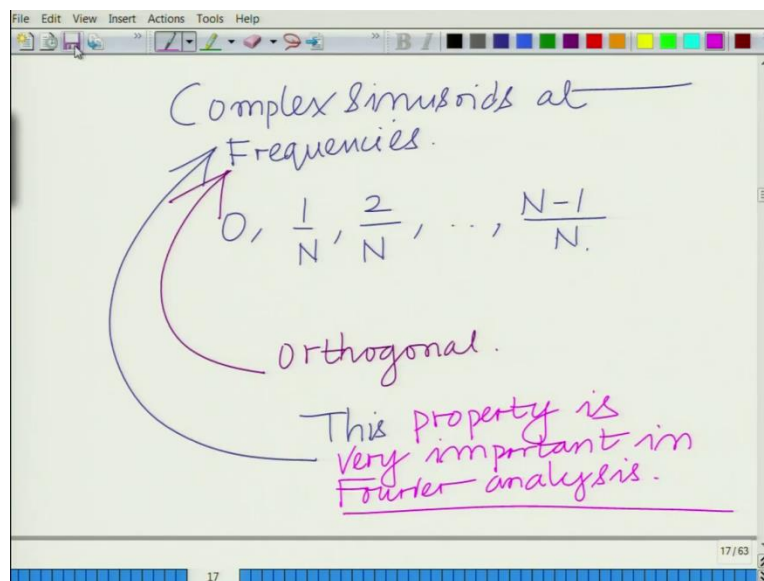 File Edit View Insert Actions Tools Help
B I
Complex Sinusoids at
Frequencies.
0, 1/N, 2/N, ..., N-1/N.
Orthogonal.
This property is
very important in
Fourier analysis.
17/63
17